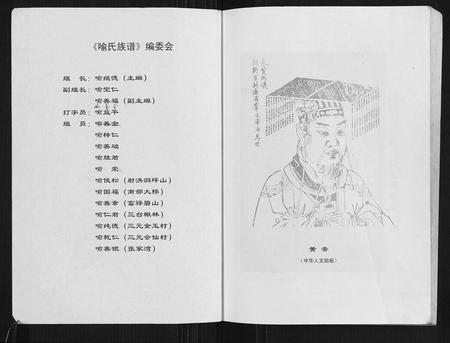 《喻氏族谱》编委会
组　长：喻继德（主编）
副组长：喻燮仁
喻善福（副主编）
打字员：喻益平
组　员：喻善金
喻梓仁
喻善础
喻胜君
喻　荣
喻俊松（射洪洞坪山）
喻国福（南部大桥）
喻善章（富驿碧山）
喻仁君（三台楸林）
喻纯德（三元金玉村）
喻乾仁（三元会仙村）
喻善银（张家湾）
黄 帝
（中华人文始祖）